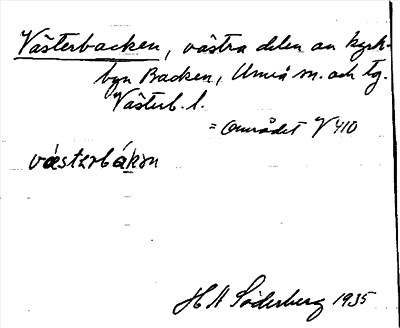 Västerbacken, västra delen av kyrk-
byn Backen, Umeå sn. och tg.
Västerb. l.
= området V 410
västerbákɒn
H A Söderberg 1935